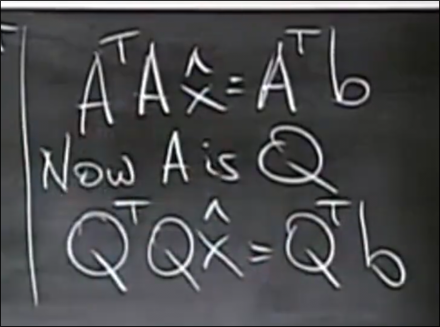 AᵀA x̂ = Aᵀb
Now A is Q
QᵀQ x̂ = Qᵀb